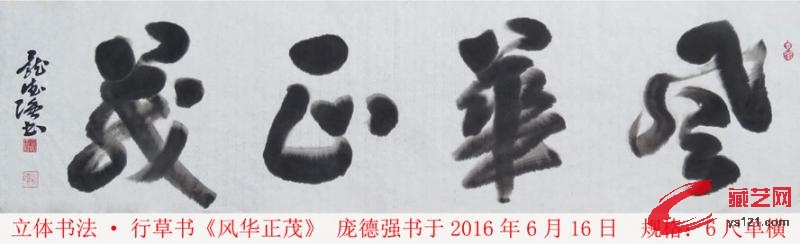 風華正茂
龐德強書
立体书法 • 行草书《风华正茂》 庞德强书于 2016 年 6 月 16 日 规格：6 尺单横
藏艺网
ys121.com